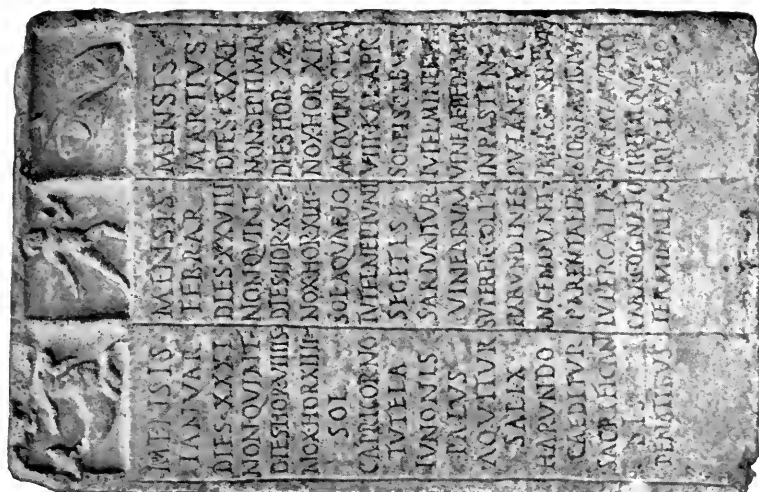 MENSIS
IANVAR
DIES·XXXI
NON·QVINT
DIES·HOR·VIIIIS
NOX·HOR·XIIII
SOL
CAPRICORNO
TVTELA
IVNONIS
PALVS
AQVITVR
SALIX
HARVNDO
CAEDITVR
SACRIFICAN
DIS
PENATIBVS
MENSIS
FEBRAR
DIES·XXVIII
NON·QVINT
DIES·HOR·XS
NOX·HOR·XIII
SOL·AQVARIO
TVTEL·NEPTVNI
SEGETES
SARIVNTVR
VINEARVM
SVPERFIC·COLIT
HARVNDINES
INCENDVNT
PARENTALIA
LVPERCALIA
CARA·COGNATIO
TERMINALIA
MENSIS
MARTIVS
DIES·XXXI
NON·SEPTIMAN
DIES·HOR·XII
NOX·HOR·XII
AEQVINOCTIVM
VIII·KAL·APR
SOL·PISCIBVS
TVTEL·MINERVAE
VINEAE·PEDAMIN
IN·PASTINO
PVTANTVR
ISIDIS·NAVIGIVM
SACR·MAMVRIO